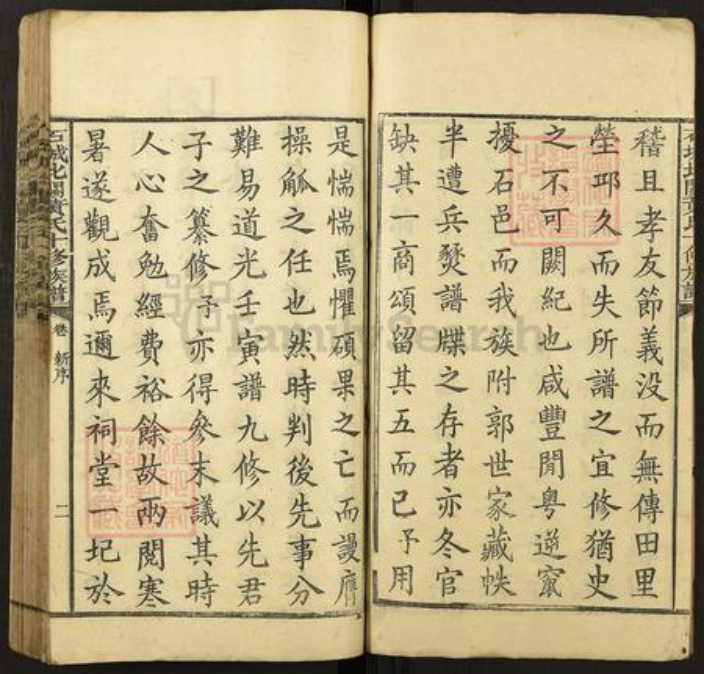 稽且孝友節義没而無傳田里
塋邱久而失所譜之宜修猶史
之不可闕紀也咸豐間粤逆竄
擾石邑而我族附郭世家藏帙
半遭兵燹譜牒之存者亦冬官
缺其一商頌留其五而已予用
是惴惴焉懼碩果之亡而謾膺
操觚之任也然時判後先事分
難易道光壬寅譜九修以先君
子之纂修予亦得參末議其時
人心奮勉經費裕餘故兩閱寒
暑遂觀成焉邇來祠堂一圮於
石城北關黄氏十修族譜 卷 新序 二
FamilySearch